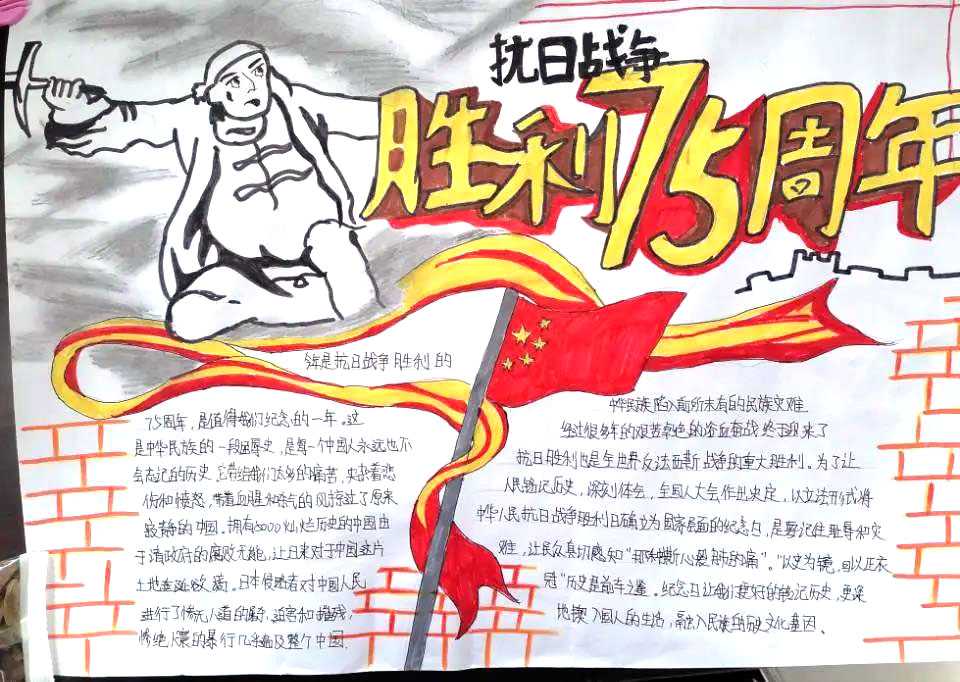 抗日战争
胜利75周年
年是抗日战争胜利的
75周年，是值得我们纪念的一年。这
是中华民族的一段屈辱史，是每一个中国人永远也不
会忘记的历史，它带给我们太多的痛苦，夹杂着悲
伤和愤怒，带着血腥和杀气的风掠过了原来
寂静的中国。拥有5000灿烂历史的中国由
于清政府的腐败无能，让日来对于中国这片
土地 日本侵略者对中国人民
进行了惨无人道的 迫害和
惨绝人寰的暴行几乎遍及整个中国.
中华民族陷入前所未有的民族灾难
经过很多年的艰苦卓绝的浴血奋战终于迎来了
抗日胜利也是全世界反法西斯战争的重大胜利。为了让
人民铭记历史，深刻体会，全国人大会作出决定，以立法形式将
中华人民抗日战争胜利日确立为国家层面的纪念日，是要记住耻辱和灾
难，让民众真切感知“那种撕心裂肺的痛”。“以史为镜，可以正衣
冠”历史是前车之鉴。纪念日让我们更好的铭记历史，更深
地揳入国人的生活，融入民族的历史文化基因、